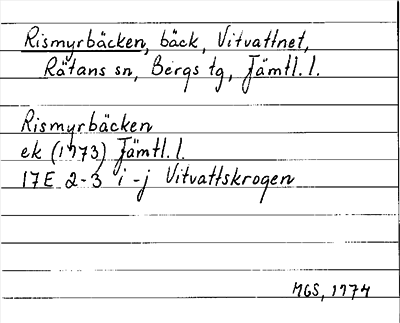 Rismyrbäcken, bäck, Vitvattnet,
Rätans sn, Bergs tg, Jämtl. l.
Rismyrbäcken
ek (1973) Jämtl. l.
17E 2-3 i-j Vitvattskrogen
MGS, 1974